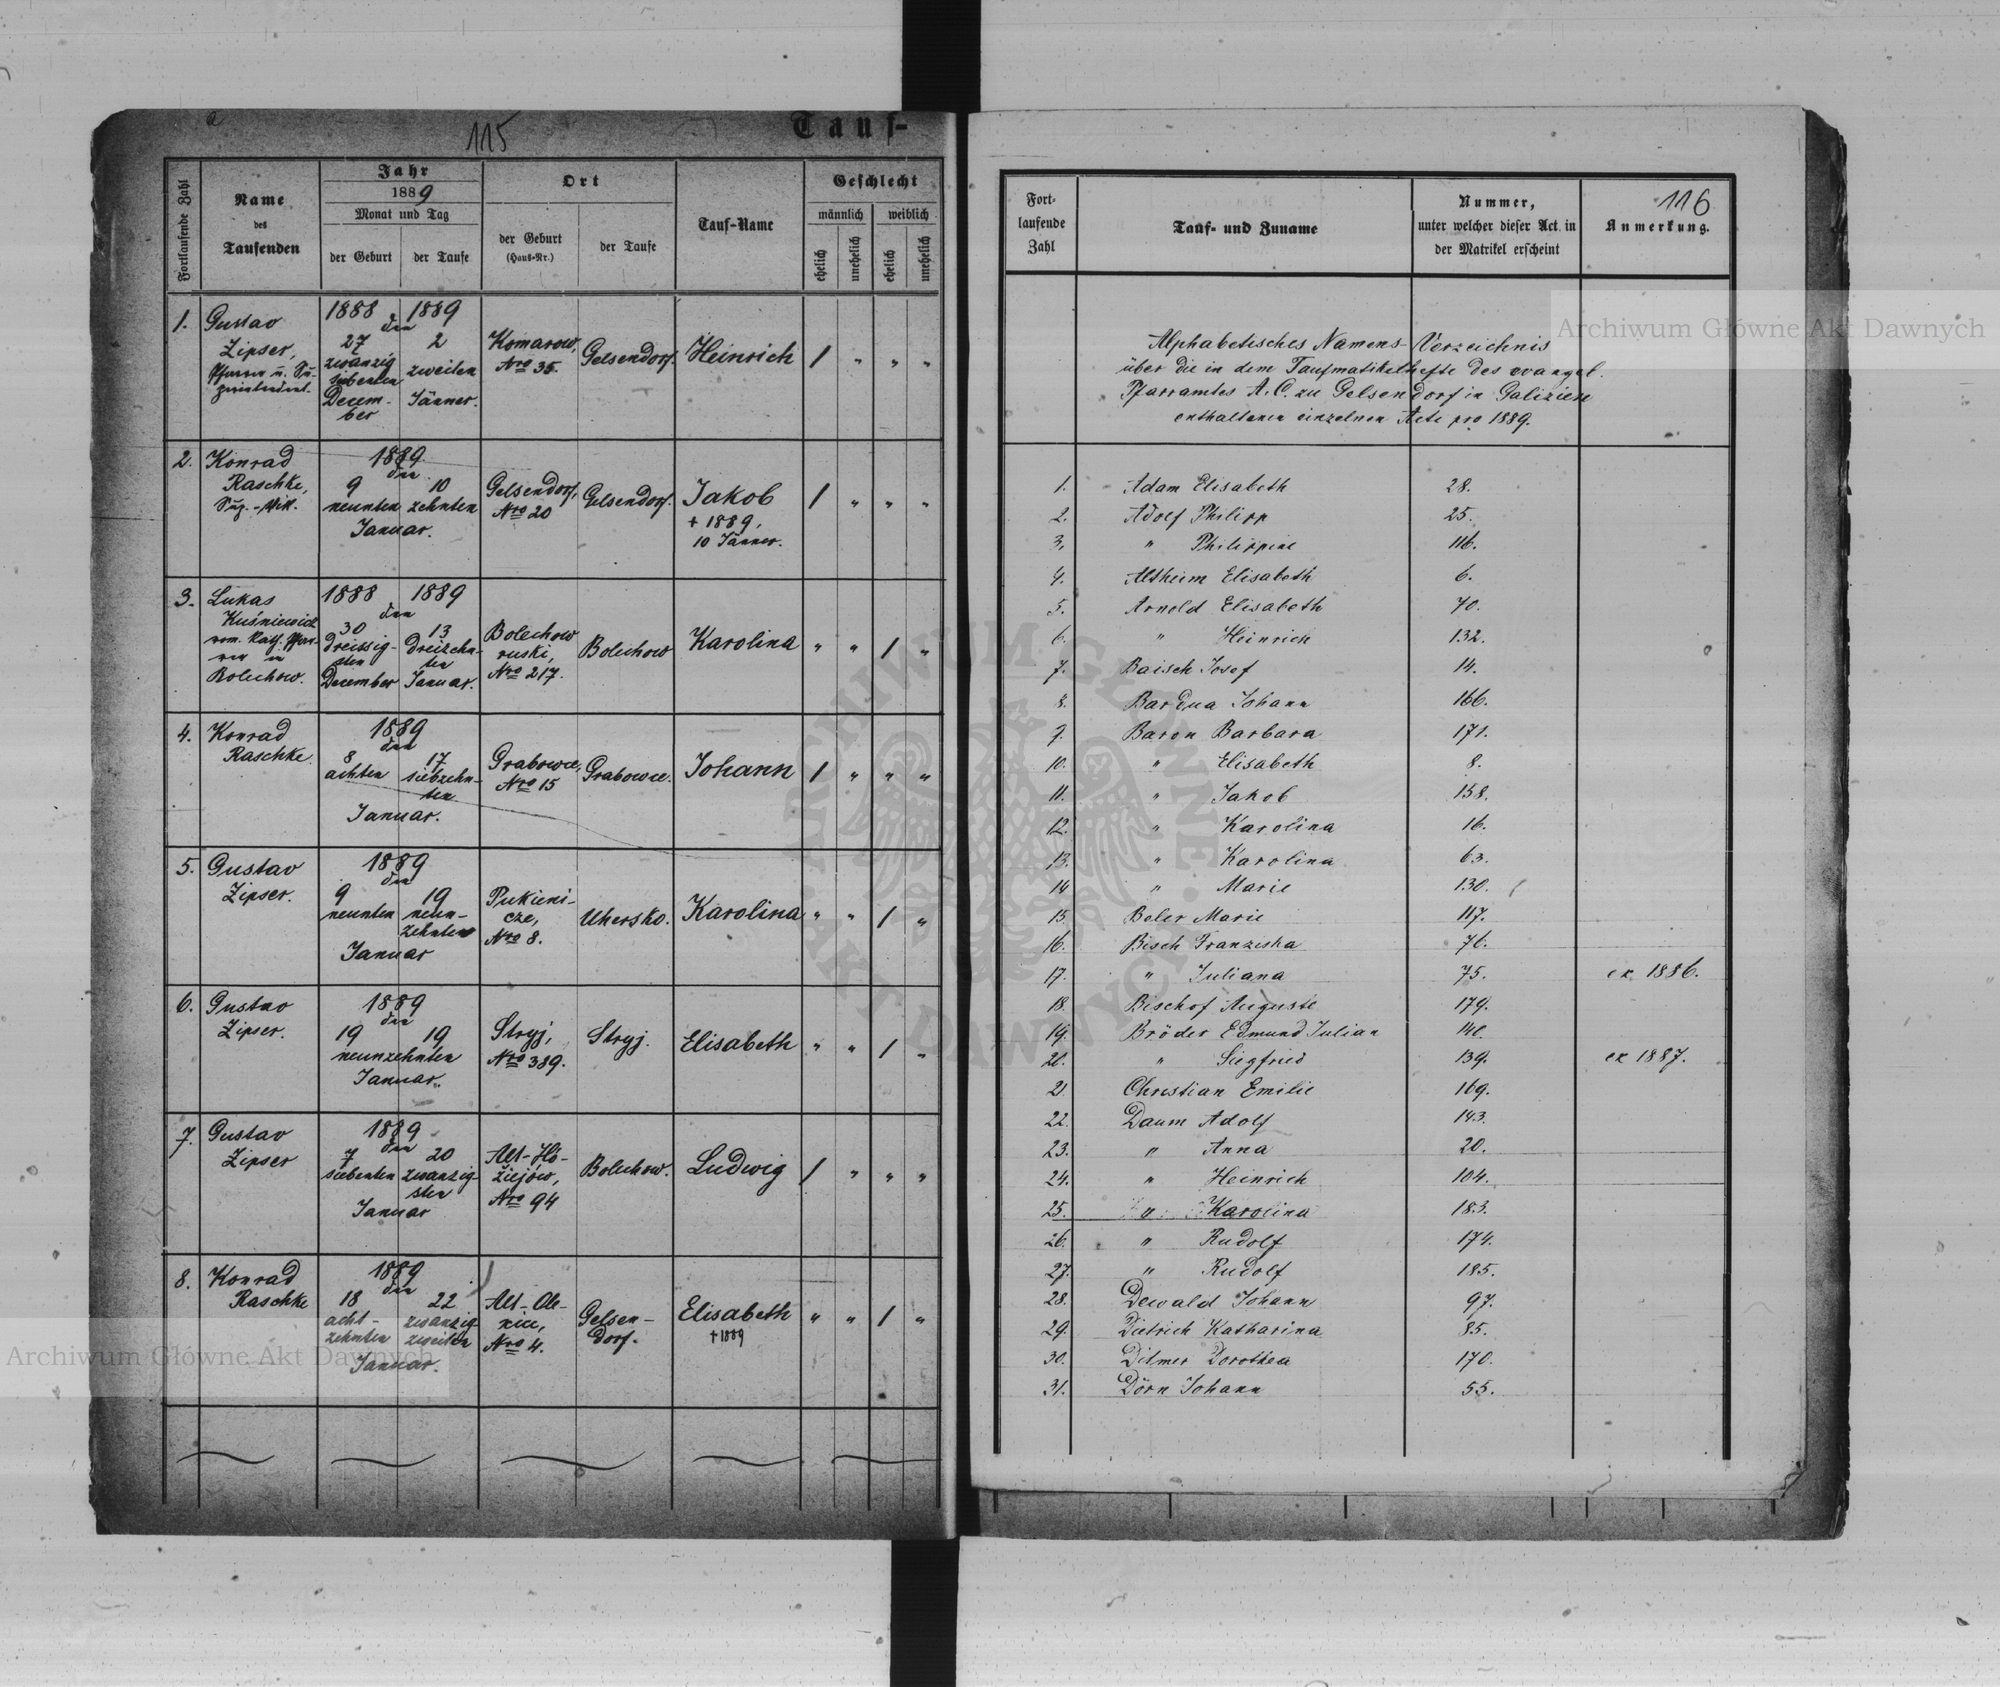 115
Tauf-
Fortlaufende Zahl
Name
des
Taufenden
Jahr
1889
Monat und Tag
der Geburt
der Taufe
Ort
der Geburt
(Haus-Nr.)
der Taufe
Tauf-Name
Geschlecht
männlich
weiblich
ehelich
unehelich
ehelich
unehelich
1. Gustav 1888 den 1889
Zipser, 27 2 Komarow, Gelsendorf. Heinrich / " " "
Pfarrer u. Su- zwanzig zweiten Nro 35.
perintendent. siebenten
Decem- Jänner.
ber
2. Konrad 1889
Raschke, den
Sup.-Vik. 9 10 Gelsendorf, Gelsendorf. Jakob / " " "
neunten zehnten Nro 20 + 1889,
Januar. 10 Jänner.
3. Lukas 1888 den 1889
Kuśniewicz 30 13 Bolechow Bolechow Karolina " " / "
röm. kath. Pfar- Dreissig- Dreizehn- ruski,
rer in sten ten Nro 217.
Bolechow. December Januar.
4. Konrad 1889
Raschke den
8 17 Grabowce, Grabowce. Johann / " " "
achten siebzehn- Nro 15
ten
Januar.
5. Gustav 1889
Zipser. den
9 19 Pukieni- Uhersko. Karolina " " / "
neunten neun- cze,
zehnten Nro 8.
Januar
6. Gustav 1889
Zipser. den
19 19 Stryj, Stryj. Elisabeth " " / "
neunzehnten Nro 389.
Januar.
7. Gustav 1889
Zipser den
7 20 Alt-Ho- Bolechow. Ludwig / " " "
siebenten zwanzig- ziejów,
sten Nro 94
Januar
8. Konrad 1889
Raschke den
18 22 Alt-Ole- Gelsen- Elisabeth " " / "
acht- zwanzig nice, dorf. +1889
zehnten zweiten Nro 4.
Januar.
116
Fort-
laufende
Zahl
Tauf- und Zuname
Nummer,
unter welcher dieser Act in
der Matrikel erscheint
Anmerkung.
Alphabetisches Namens-Verzeichnis
über die in dem Taufmatrikelhefte des evangel.
Pfarramtes A.C. zu Gelsendorf in Galizien
enthaltenen einzelnen Acte pro 1889.
1. Adam Elisabeth 28.
2. Adolf Philipp 25.
3. " Philippine 116.
4. Altheim Elisabeth 6.
5. Arnold Elisabeth 70.
6. " Heinrich 132.
7. Baisch Josef 14.
8. Bardua Johann 166.
9. Baron Barbara 171.
10. " Elisabeth 8.
11. " Jakob 158.
12. " Karolina 16.
13. " Karolina 63.
14 " Marie 130.
15 Beler Marie 117.
16. Bisch Franziska 76.
17. " Juliana 75. ex 1886.
18. Bischof Auguste 179.
19. Bröder Edmund Julian
20. " Siegfried 139. ex 1887.
21 Christian Emilie 169.
22. Daum Adolf 143.
23. " Anna 20.
24. " Heinrich 104.
25. " Karolina 183.
26. " Rudolf 174.
27. " Rudolf 185.
28. Dewald Johann 97.
29. Dietrich Katharina 85.
30. Ditmer Dorothea 170.
31. Dörn Johann 55.
Archiwum Główne Akt Dawnych
Archiwum Główne Akt Dawnych
ARCHIWUM GŁÓWNE AKT DAWNYCH